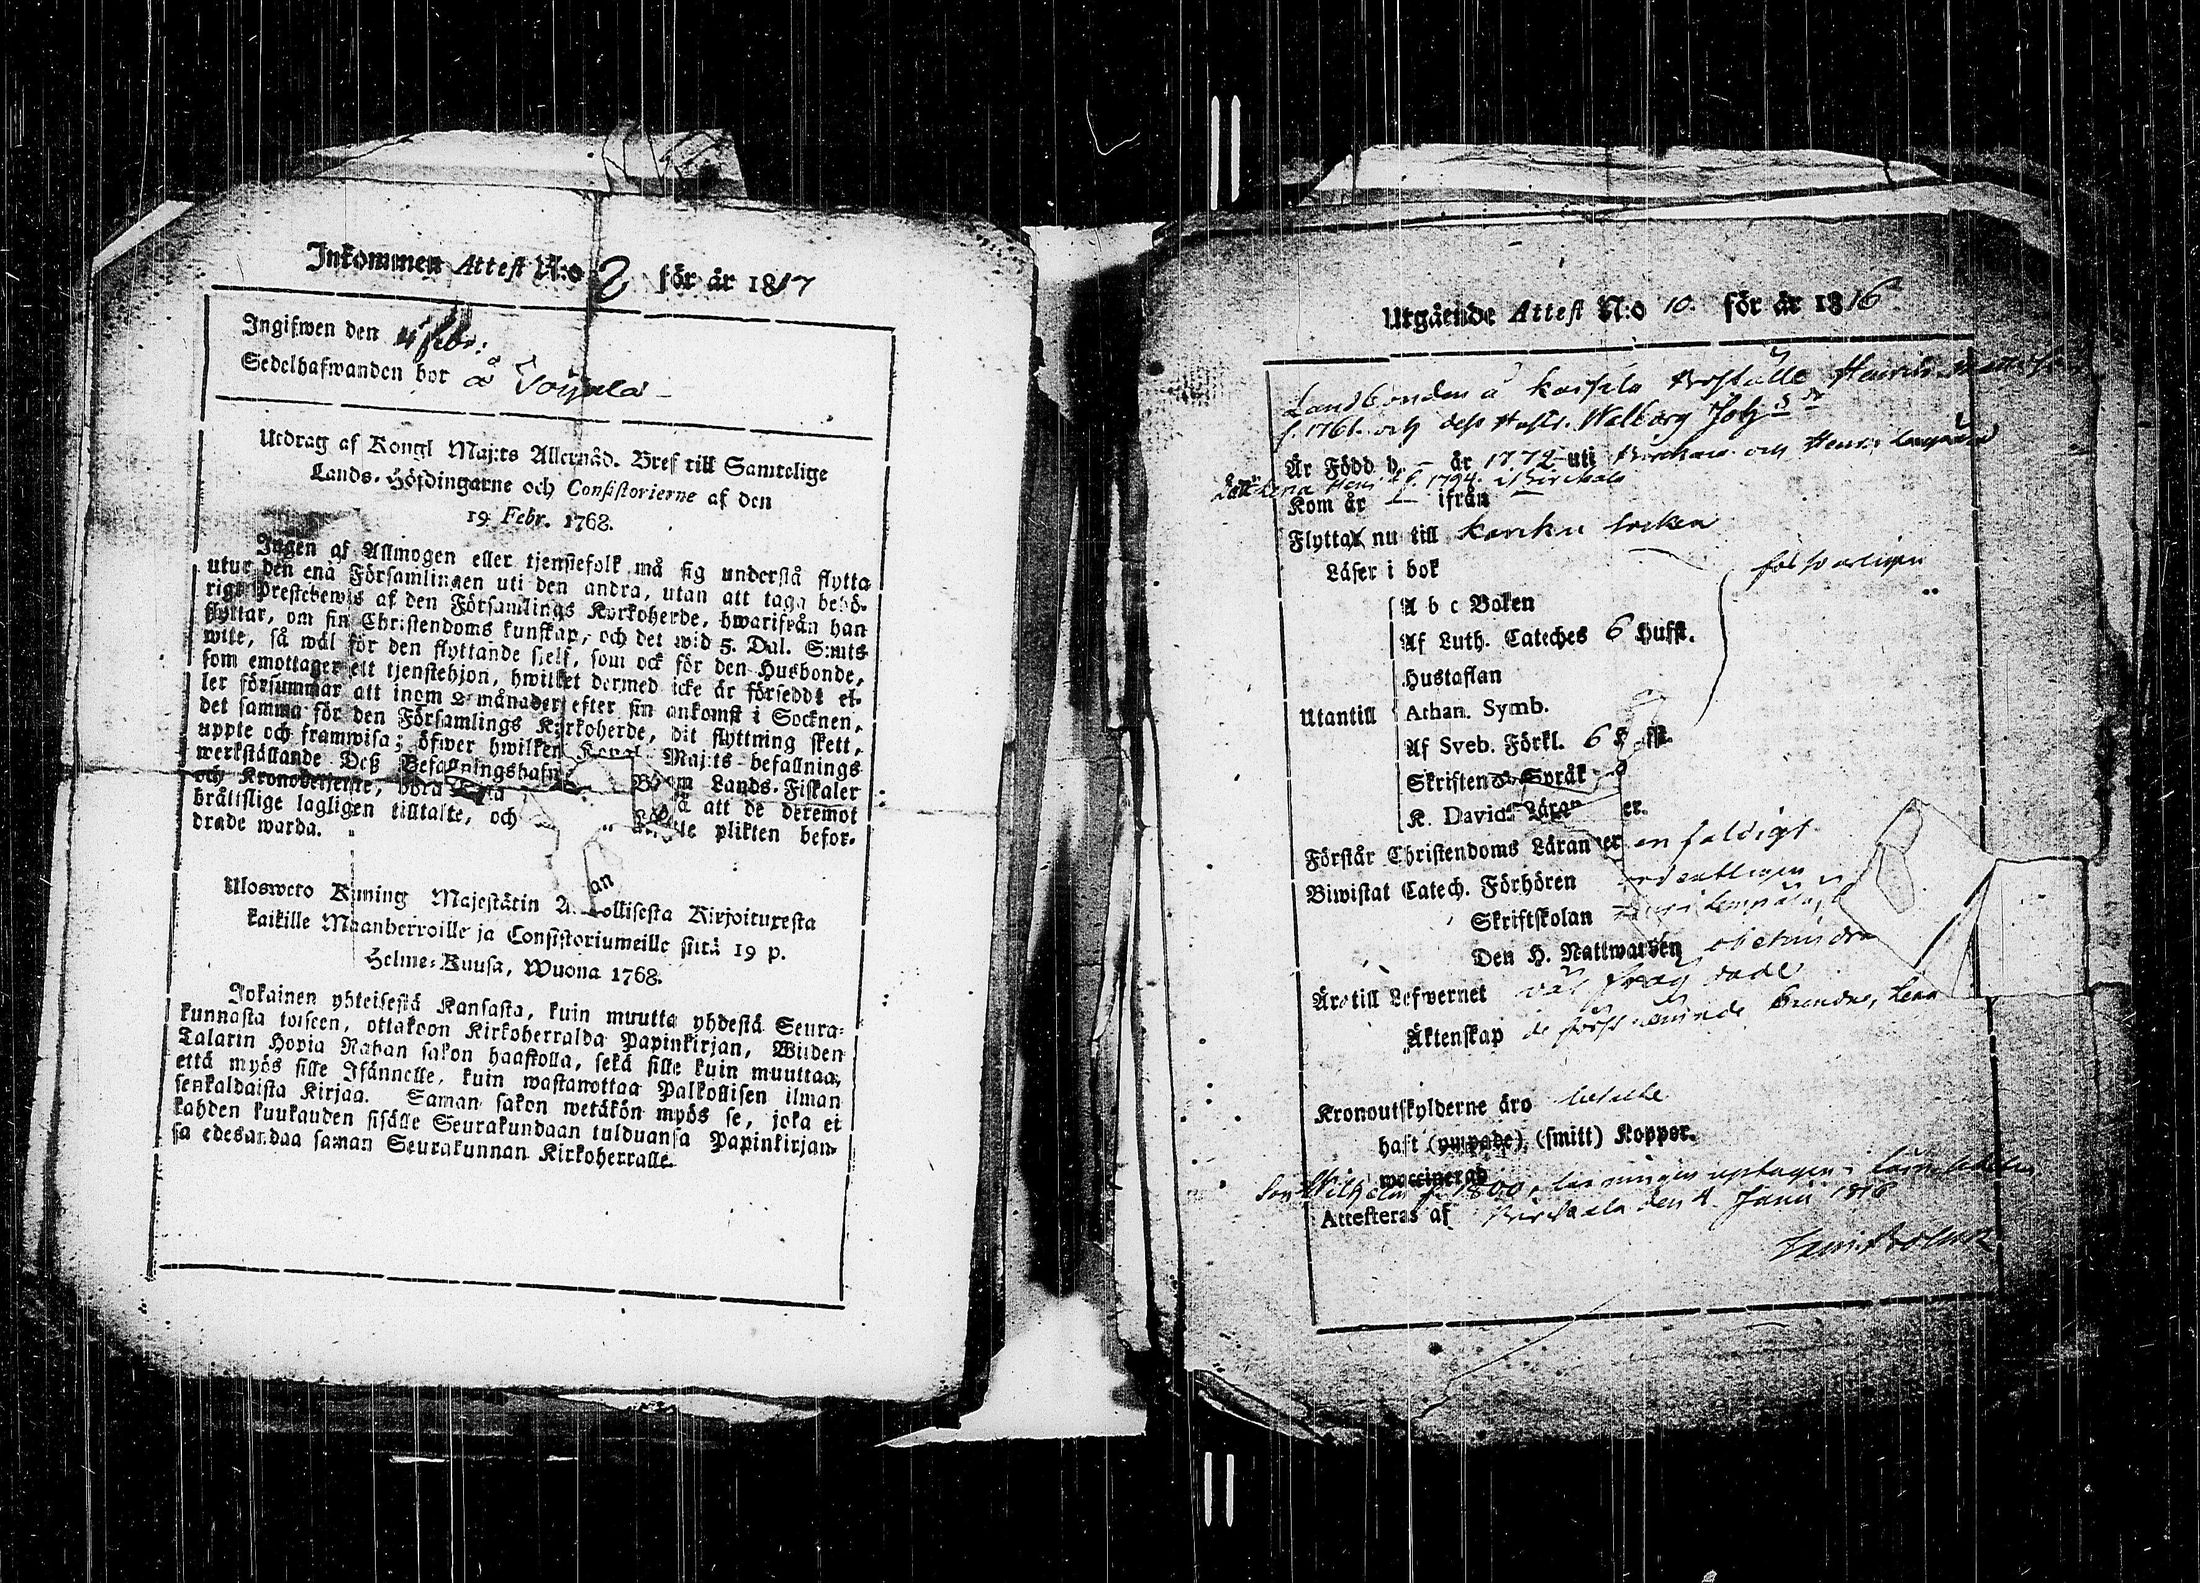 Inkommen Attest N:o 2 för år 1817
Ingifwen den 4 febr:
Sedelhafwanden bor å
Utdrag af Kongl Maj:ts Allernåd. Bref till Samtelige
Lands-Höfdingarne och Consistorierne af den
19 Febr. 1768.
Ingen af Allmogen eller tjenstefolk må sig understå flytta
utur den ena Församlingen uti den andra, utan att taga behö-
rigt Prestebewis af den Församlings Kyrkoherde, hwarifrån han
flyttar, om sin Christendoms kunskap, och det wid 5. Dal. S:mts
wite, så wäl för den flyttande sielf, som ock för den Husbonde,
som emottager ett tjenstehjon, hwilket dermed icke är förseddt el-
ler försummar att inom 2 månader efter sin ankomst i Socknen,
det samma för den Församlings Kyrkoherde, dit flyttning skett,
uppte och framwisa; öfwer hwilken Kongl. Maj:ts befallnings
werkställande Deß Befallningshafw Lands-Fiskaler
och Kronobetjente, böra att de deremot
bråttslige lagligen tilltalte, och plikten befor-
drade warda.
Ulosweto Kuning Majestätin Kirjoituxesta
kaikille Maanherroille ja Consistoriumeille siitä 19 p.
Helme-Kuusa, Wuona 1768.
Jokainen yhteisestä Kansasta, kuin muutta yhdestä Seura-
kunnasta toiseen, ottakoon Kirkoherralda Papinkirjan, Wiiden
Talarin Hopia Rahan sakon haastolla, sekä sille kuin muuttaa,
että myös sille Isännelle, kuin wastanottaa Palkollisen ilman
senkaldaista Kirjaa. Saman sakon wetäkön myös se, joka ei
kahden kuukauden sisälle Seurakundaan tulduansa Papinkirjan-
sa edesandaa saman Seurakunnan Kirkoherralle.
Utgående Attest N:o 10. för år 1816
Landbonden å Henrik
f. 1761. och dess Hustr. Walborg Joh:s dr
Är Född d. – år 1772 uti och Henr:
Lena Henr: f. 1794. i Birckala
Kom år — ifrån
Flyttar nu till Karku socken
Läser i bok försvarligen
A b c Boken
Af Luth. Cateches 6 Hufst.
Hustaflan
Utantill Athan. Symb.
Af Sveb. Förkl. 6 Hufst.
Skriftenes Språk
K. Davids Läran er.
Förstår Christendoms Läran er enfaldigt
Biwistat Catech. Förhören ordentligen
Skriftskolan
Den H. Nattwarden obehindra
Äro till Lefwernet väl fräg dade
Äktenskap de förstnämnde bundne, Lena
Kronoutskylderne äro betalte
haft (ympade), (smitt) Koppor.
waccinerad
Son Wilhelm f. 1800,
Attesteras af Birckala den 4. Junii 1816